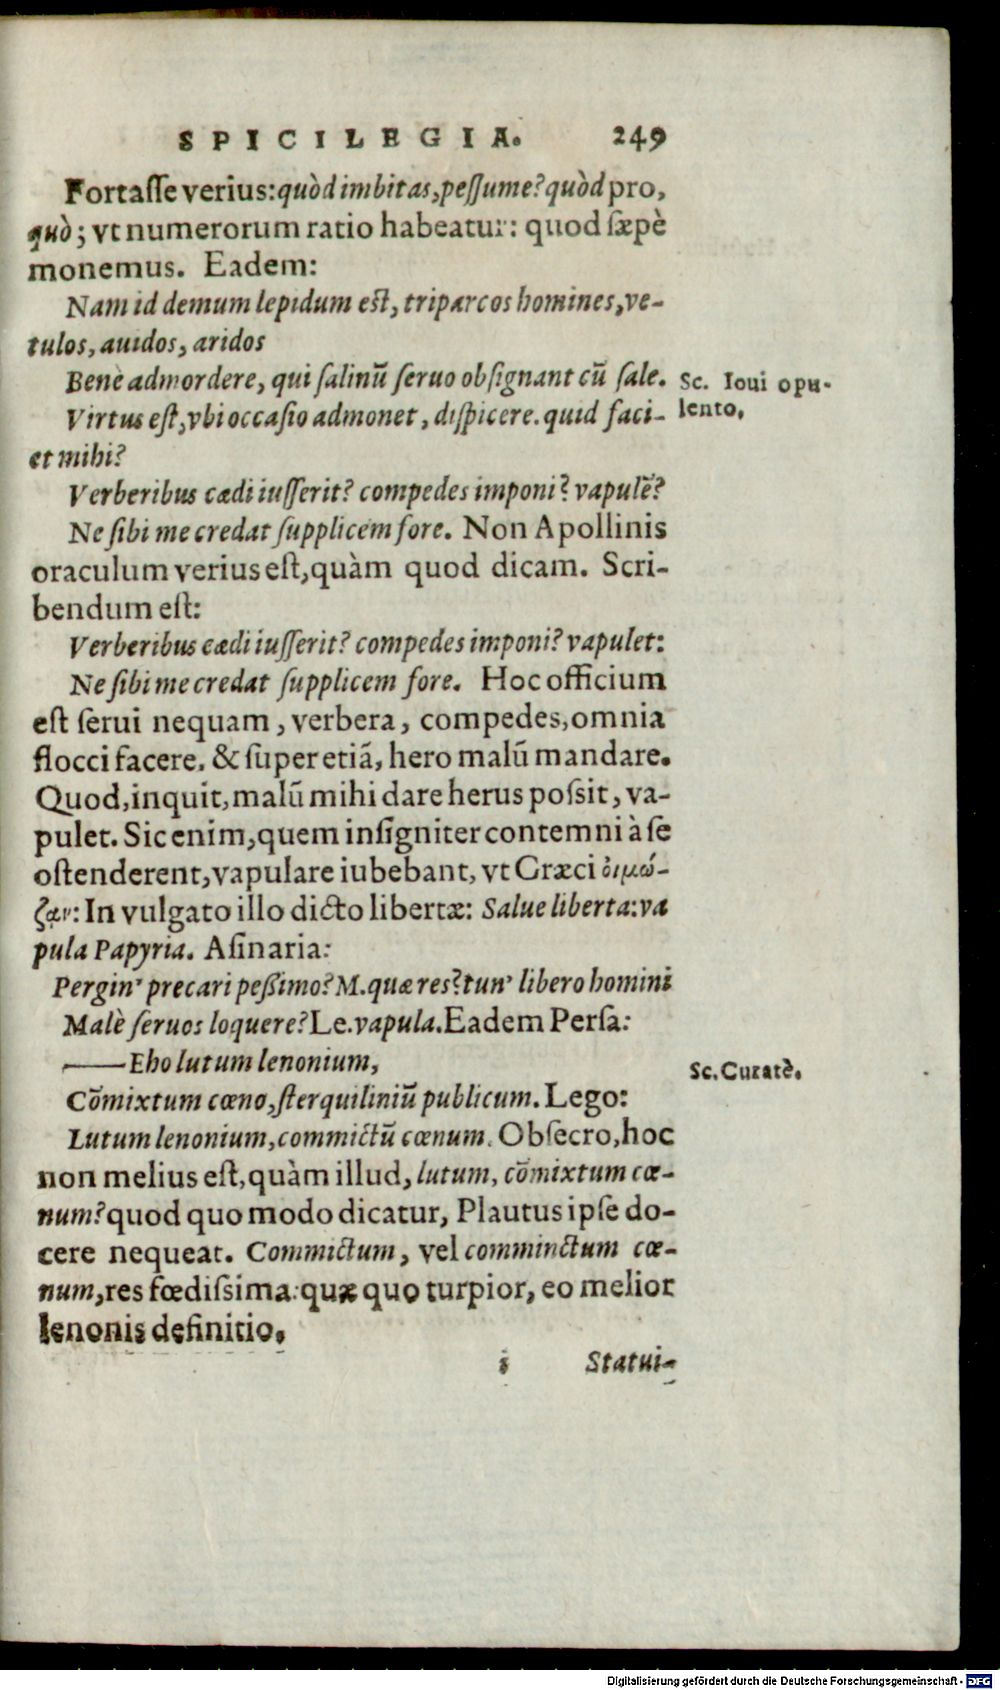 SPICILEGIA. 249
Fortaſſe verius: quòd imbitas, peſſume? quòd pro,
quò; vt numerorum ratio habeatur: quod ſæpè
monemus. Eadem:
Nam id demum lepidum eſt, triparcos homines, ve-
tulos, auidos, aridos
Benè admordere, qui ſalinū ſeruo obſignant cū ſale.
Sc. Ioui opu-
lento,
Virtus eſt, vbi occaſio admonet, diſpicere. quid faci-
et mihi?
Verberibus cædi iuſſerit? compedes imponi? vapulē?
Ne ſibi me credat ſupplicem fore. Non Apollinis
oraculum verius eſt, quàm quod dicam. Scri-
bendum eſt:
Verberibus cædi iuſſerit? compedes imponi? vapulet:
Ne ſibi me credat ſupplicem fore. Hoc officium
eſt ſerui nequam, verbera, compedes, omnia
flocci facere. & ſuper etiā, hero malū mandare.
Quod, inquit, malū mihi dare herus poſsit, va-
pulet. Sic enim, quem inſigniter contemni à ſe
oſtenderent, vapulare iubebant, vt Græci ὀιμώ-
ζᾳν: In vulgato illo dicto libertæ: Salue liberta: va
pula Papyria. Aſinaria:
Pergin' precari peßimo? M. quæ res? tun' libero homini
Malè ſeruos loquere? Le. vapula. Eadem Perſa:
—— Eho lutum lenonium,
Sc. Curatè.
Cōmixtum cœno, ſterquiliniū publicum. Lego:
Lutum lenonium, commictū cœnum. Obſecro, hoc
non melius eſt, quàm illud, lutum, cōmixtum cœ-
num? quod quo modo dicatur, Plautus ipſe do-
cere nequeat. Commictum, vel comminctum cœ-
num, res fœdiſsima: quæ quo turpior, eo melior
lenonis definitio.
i Statui-
Digitalisierung gefördert durch die Deutsche Forschungsgemeinschaft - DFG